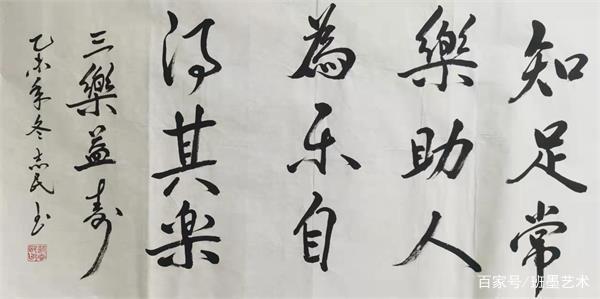 知足常
樂助人
為乐自
得其楽
三樂益寿
乙未年冬志民书
百家号/班墨艺术